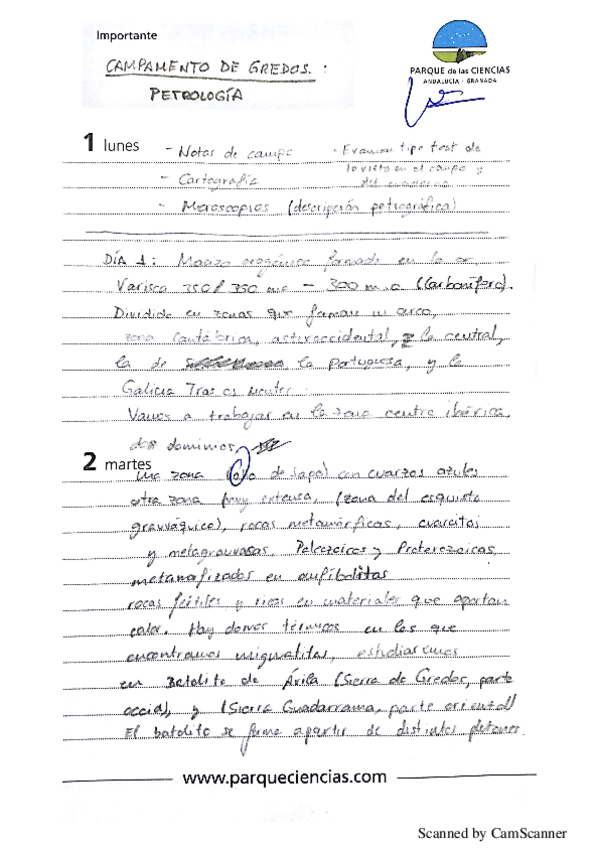 Importante
CAMPAMENTO DE GREDOS. :
PETROLOGÍA
PARQUE de las CIENCIAS
ANDALUCÍA - GRANADA
1 lunes
- Notas de campo
- Cartografía
- Microscopios (descripción petrográfica)
- Examen tipo test de
lo visto en el campo y
del cuaderno
DÍA 1: Macizo orogénico formado en la or.
Varisca 350 m.a - 300 m.a (Carbonífero).
Dividido en zonas que forman un arco,
zona cantábrica, asturoccidental, la central,
la de la portuguesa, y la
Galicia Tras os montes.
Vamos a trabajar en la zona centro ibérica,
dos dominios,
2 martes
una zona (ollo de sapo) con cuarzos azules
otra zona muy extensa, (zona del esquisto
grauváquico), rocas metamórficas, cuarcitas
y metagrauvacas. Paleozoicas y Proterozoicas,
en anfibolitas
rocas fértiles y ricas en materiales que aportan
calor. Hay domos térmicos en los que
encontramos migmatitas, estudiaremos
en Batolito de Ávila (Sierra de Gredos, parte
occid), y (Sierra Guadarrama, parte oriental)
El batolito se forma apartir de distintos plutones.
www.parqueciencias.com
Scanned by CamScanner